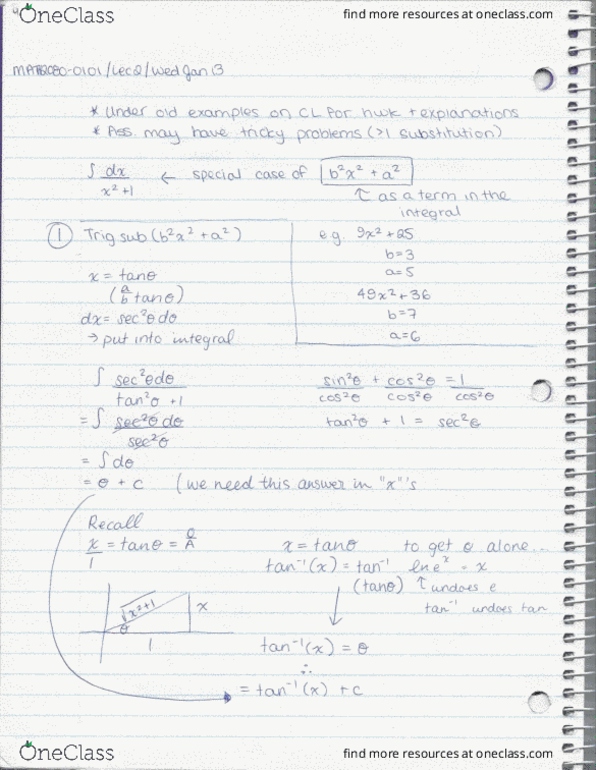 OneClass find more resources at oneclass.com
MATB2080-0101/Lec2/Wed Jan 13
* Under old examples on CL for hwk + explanations
* Ass. may have tricky problems (>1 substitution)
∫ dx / x²+1 ← special case of b²x² + a²
↑ as a term in the integral
① Trig sub (b²x² + a²)
x = tanθ
(a/b tanθ)
dx = sec²θdθ
→ put into integral
e.g. 9x² + 25
b=3
a=5
49x² + 36
b=7
a=6
∫ sec²θdθ / tan²θ +1
= ∫ sec²θ dθ / sec²θ
= ∫dθ
= θ + c (we need this answer in "x"'s
sin²θ/cos²θ + cos²θ/cos²θ = 1/cos²θ
tan²θ + 1 = sec²θ
Recall
x/1 = tanθ = O/A
√x²+1
x
θ
1
x = tanθ to get θ alone...
tan⁻¹(x) = tan⁻¹(tanθ)
ln eˣ = x
↑ undoes e
tan⁻¹ undoes tan
tan⁻¹(x) = θ
∴
= tan⁻¹(x) + c
OneClass find more resources at oneclass.com